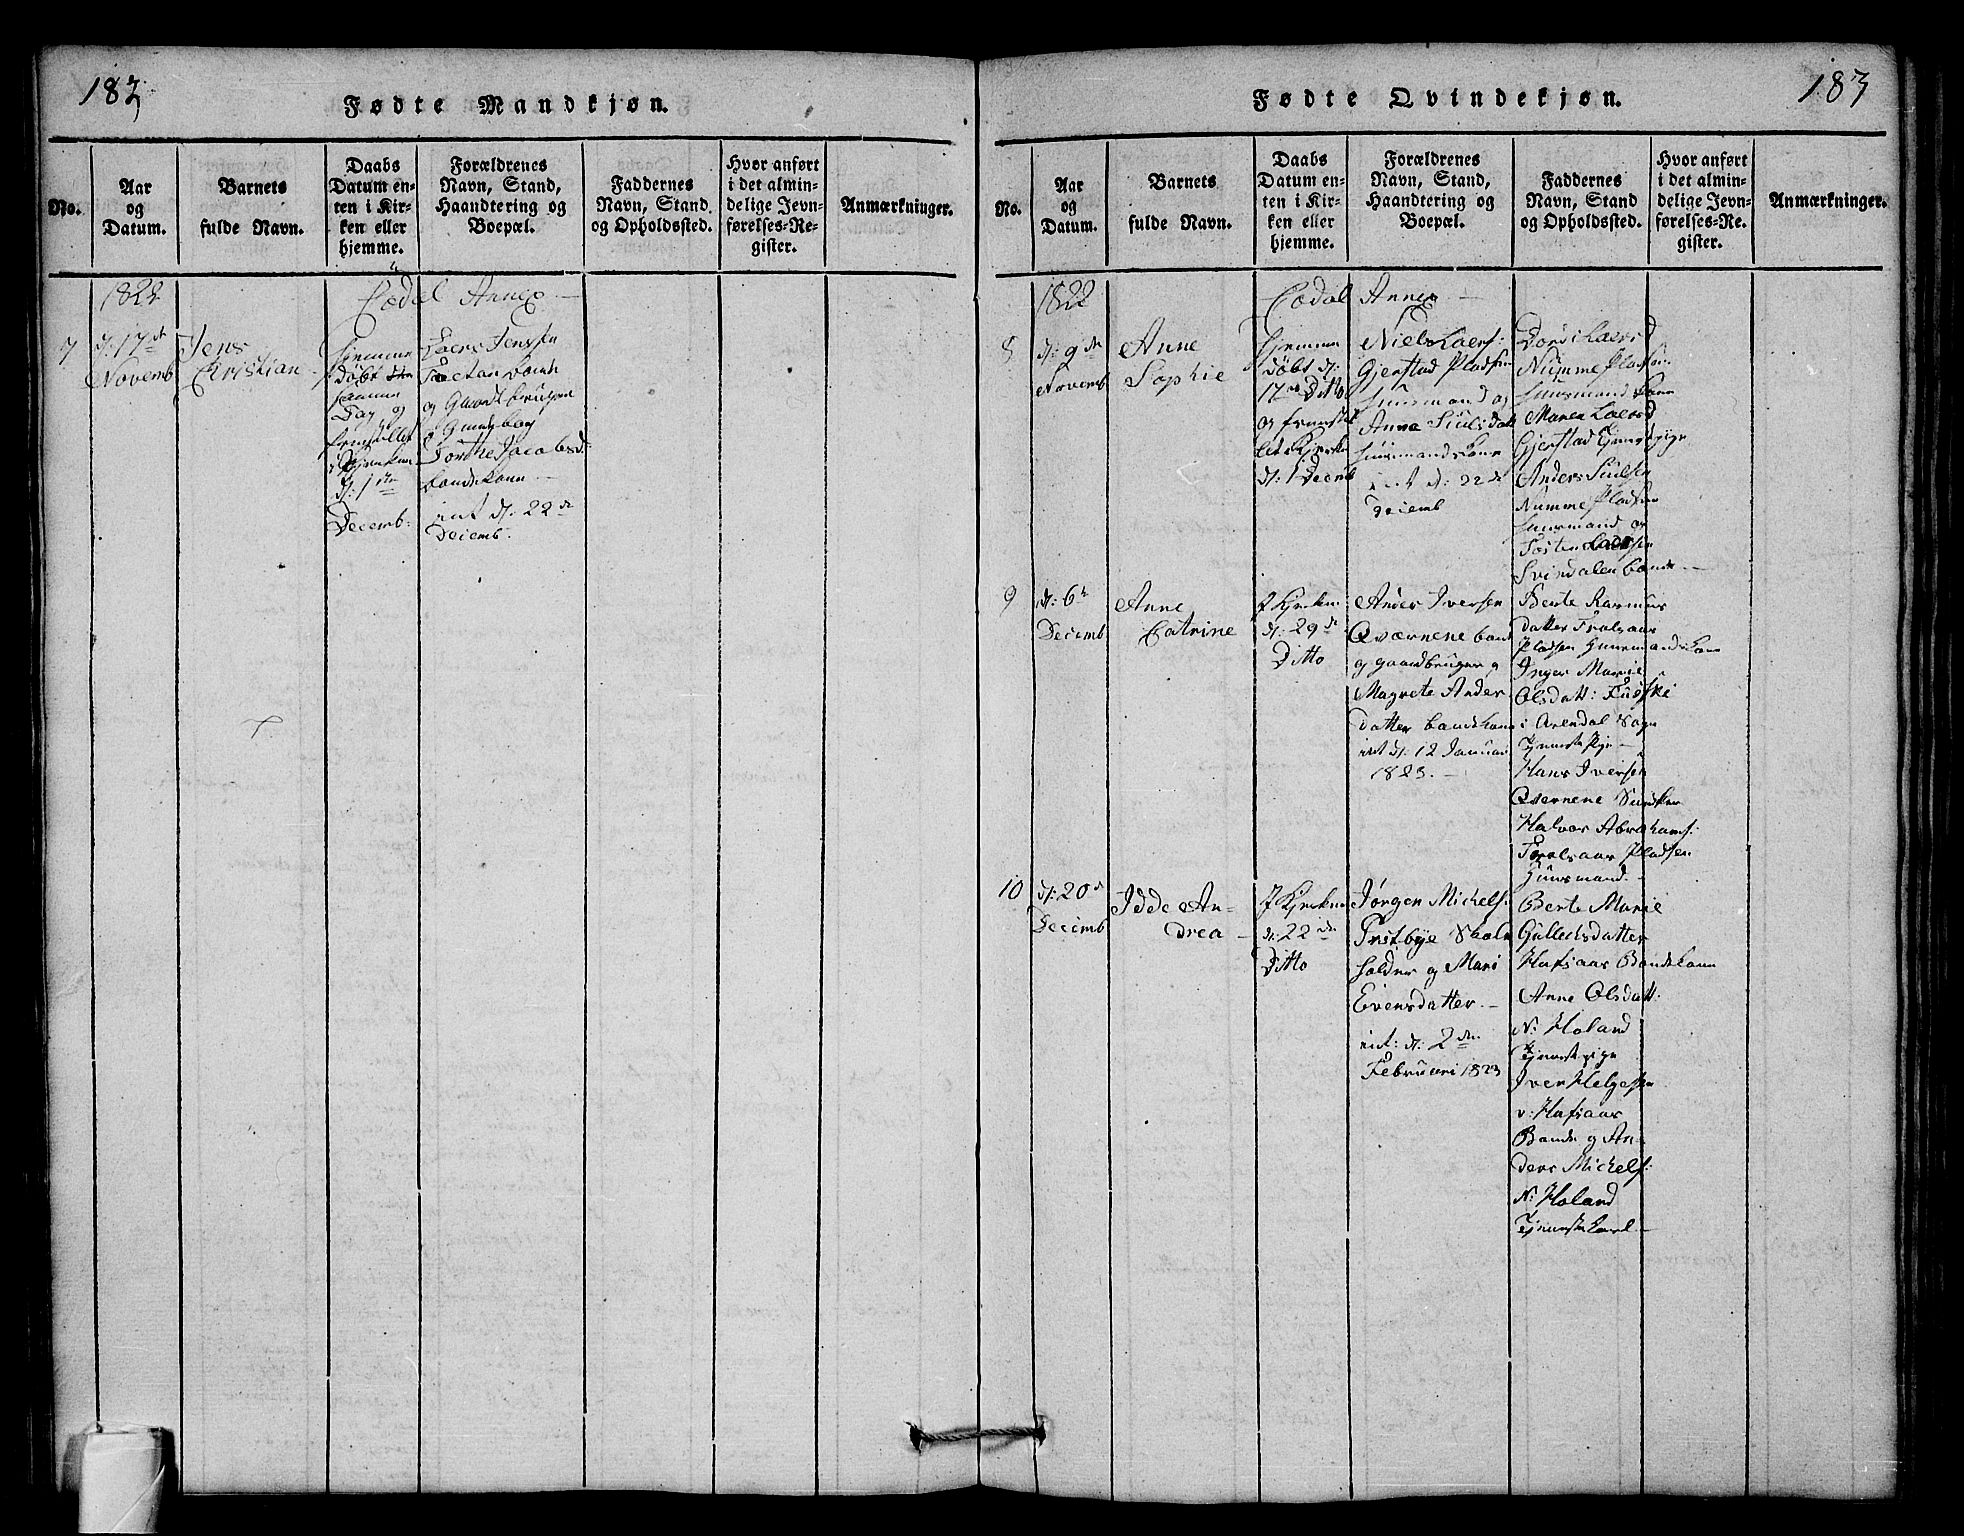 183
Fødte Mandkjøn.
No.
Aar
og
Datum.
Barnets
fulde Navn.
Daabs
Datum en-
ten i Kir-
ken eller
hjemme.
Forældrenes
Navn, Stand,
Haandtering og
Boepæl.
Faddernes
Navn, Stand
og Opholdssted.
Hvor anført
i det almin-
delige Jevn-
førelses-Re-
gister.
Anmærkninger.
1822
Annex
7
d: 17de
Novemb
Jens
Christian
hjemme
døbt
samme
Dag og
i Kjerken
d: 1ste
Decemb:
Laers Jenssen
og Gaardbruger
Dorthe Jacobsd:
bondekone
int d: 22de
Deiemb.
183
Fødte Qvindekjøn.
No.
Aar
og
Datum.
Barnets
fulde Navn.
Daabs
Datum en-
ten i Kir-
ken eller
hjemme.
Forældrenes
Navn, Stand,
Haandtering og
Boepæl.
Faddernes
Navn, Stand
og Opholdssted.
Hvor anført
i det almin-
delige Jevn-
førelses-Re-
gister.
Anmærkninger.
1822
Annex
8
d: 9de
Novemb
Anne
Sophie
hjemme
døbt d:
17de Ditto
og fremstil
let i Kjerken
d: 1 Decemb
Niels Laers:
Gjerstad Pladsen
Huusmand og
Anne Siulsdatt
huusmandskone
int d: 22de
Deiemb
Laersd
Numme Pladsen
huusmandskone
Maren Laersd
Gjerstad Tjenestpige
Anders Siulsen
Numme Pladsen
huusmand og
Tosten Laersen
Svindalen bonde
9
d: 6te
Decemb
Anne
Catrine
I Kjerken
d: 29de
Ditto
Anders Iversen
Qværnene bonde
og gaardbruger og
Magrete Anders
datter bondekone
int d: 12 Januar
1823.
Berte Rasmus
datter
Pladsen Huusmandskone
Inger Marie
Olsdatt:
i Arendal Sogn
Tjenestepige
Hans Iversen
Qvernene
Halvor Abrahams:
Pladsen
Huusmand
10
d: 20de
Decemb
Idde An-
drea
I Kjerken
d: 22de
Ditto
Jørgen Michels:
holder og Mari
Evensdatter
int: d: 2den
Februari 1823
Berte Marie
Gulleksdatter
Hafsaas Bondekone
Anne Olsdatt:
N: Holand
Tjenestpige
Iver Helgesen
v: Hafsaas
Bonde og An-
ders Michels:
N: Holand
Tjenestekarl